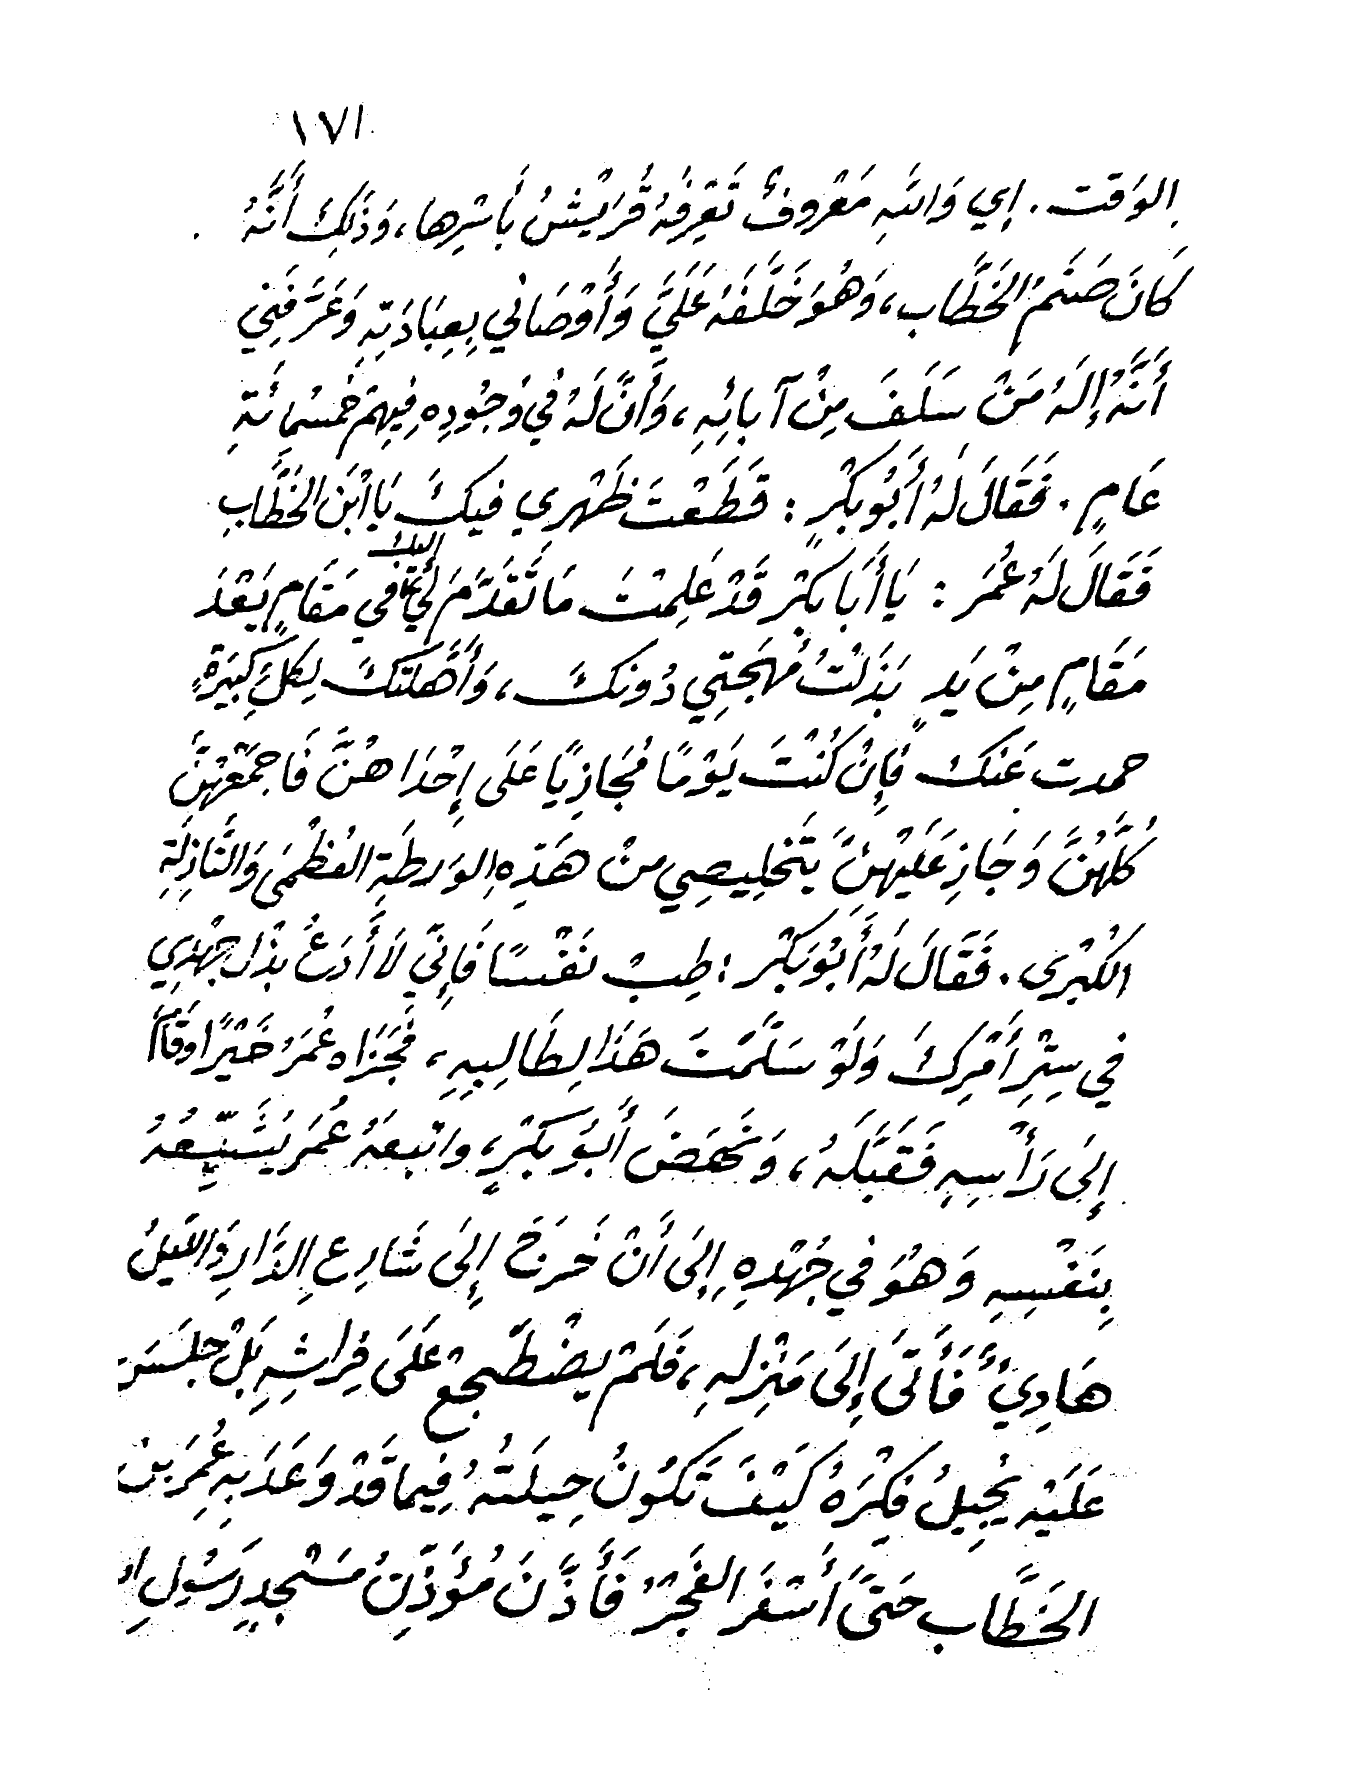 ١٧١
الوَقت . إي وَاللهِ مَعْرُوفٌ تَعْرِفُهُ قُرَيْشُ بأَسْرِها ، وَذَلِكَ أَنَّهُ
كَانَ صَنَمُ الخَطَّاب ، وَهُوَ خَلَّفَهُ عَلَيَّ وَأَوْصَاني بِعِبَادَتِهِ وَعَرَّفَنِي
أَنَّهُ إلَهُ مَنْ سَلَفَ مِنْ آبائِهِ ، وَأَنَّ لَهُ في وُجُودِهِ فِيهِمْ خَمْسُمائَةِ
عَامٍ . فَقَالَ لَهُ أَبُو بَكْرٍ : قَطَعْتَ ظَهْرِي فيكَ يَا ابْنَ الخَطَّابِ
فَقَالَ لَهُ عُمَرَ : يَا أَبَا بَكْرٍ قَدْ عَلِمْتَ مَا تَقَدَّمَ لِي إليك في مَقَامٍ بَعْدَ
مَقَامٍ مِنْ يَدٍ بَذَلْتُ مُهْجَتِي دُونَكَ ، وَأَهَّلتكَ لِكُلِّ كَبِيرَةٍ
حمدت عَنك فَإِنْ كُنْتَ يَوْمًا مُجَازِيًا عَلَى إِحْدَاهُنَّ فَاجمَعْهُنَّ
كُلَّهُنَّ وَجَازِ عَلَيْهُنَّ بِتَخلِيصِي منْ هَذِهِ الوَرطَةِ العُظْمَى وَالنَّازِلَةِ
الكُبْرى . فَقَالَ لَهُ أَبُو بَكْر : طِبْ نَفْسًا فَإِنّي لَا أَدَعُ بذْل جهْدِي
في سِتْرِ أَمْرِكَ وَلَوْ سَلَّمْتَ هَذَا لِطَالِبِهِ ، فَجَزَاه عُمَرُ خَيْرًا وَقَامَ
إِلَى رَأْسِهِ فَقَبَّلَهُ ، وَنَهَضَ أَبُو بَكْرٍ ، واتبعَهُ عُمَرَ يُشَيِّعُهُ
بِنَفْسِهِ وَهُوَ في جُهْدِهِ إِلَى أَنْ خَرَجَ إِلَى شَارِعِ الدَّارِ وَاللَّيلُ
هَادِئٌ فَأَتَى إِلَى مَنْزِلهِ ، فَلَمْ يضْطَجعْ عَلَى فِراشِهِ بَلْ جلَسَ
عَلَيْهِ يُجِيلُ فِكْرَهُ كَيْفَ تَكُونُ حِيلَتُهُ فِيما قَدْ وَعَدَ بِهِ عُمَرَ بن
الخَطَّاب حَتَّى أَسْفَرَ الفَجْرُ فَأَذَّنَ مُؤَذِّنُ مَسْجِدِ رَسُولِ